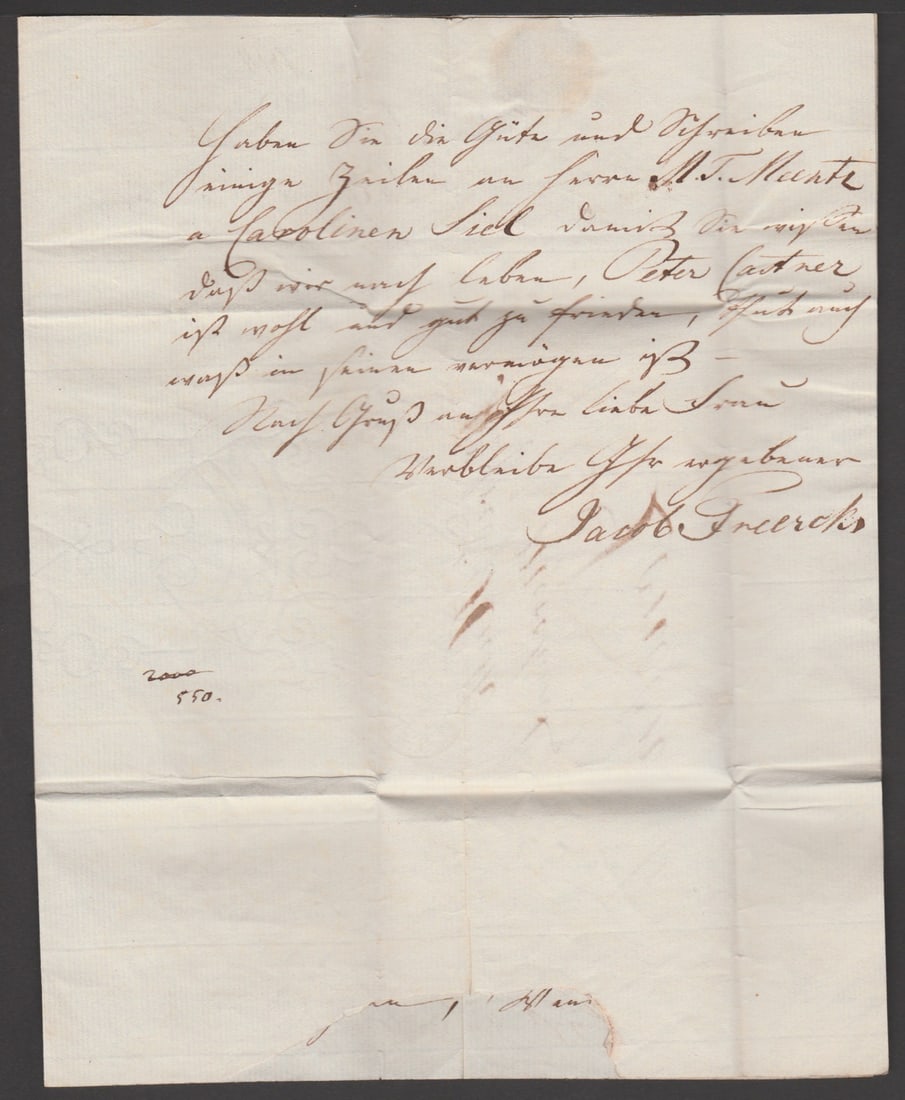 Haben Sie die Güte und Schreiben
einige Zeilen an Herrn M. T. Meentz
a Carolinen Siel damit Sie wissen
daß wir noch leben, Peter Castner
ist wohl und gut zu frieden, thut auch
waß in seinen vermögen ist –
Nach Gruß an Ihre liebe Frau
Verbleibe Ihr ergebener
Jacob Freercks
2000
550.